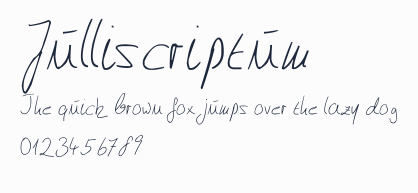 Julliscriptum
The quick brown fox jumps over the lazy dog
0123456789